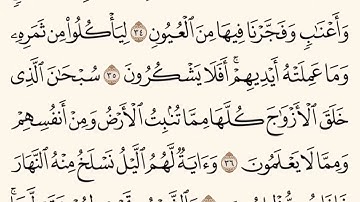 وَأَعْنَٰبٖ وَفَجَّرۡنَا فِيهَا مِنَ ٱلۡعُيُونِ ٣٤ لِيَأۡكُلُواْ مِن ثَمَرِهِۦ
وَمَا عَمِلَتۡهُ أَيۡدِيهِمۡۚ أَفَلَا يَشۡكُرُونَ ٣٥ سُبۡحَٰنَ ٱلَّذِي
خَلَقَ ٱلۡأَزۡوَٰجَ كُلَّهَا مِمَّا تُنۢبِتُ ٱلۡأَرۡضُ وَمِنۡ أَنفُسِهِمۡ
وَمِمَّا لَا يَعۡلَمُونَ ٣٦ وَءَايَةٞ لَّهُمُ ٱلَّيۡلُ نَسۡلَخُ مِنۡهُ ٱلنَّهَارَ